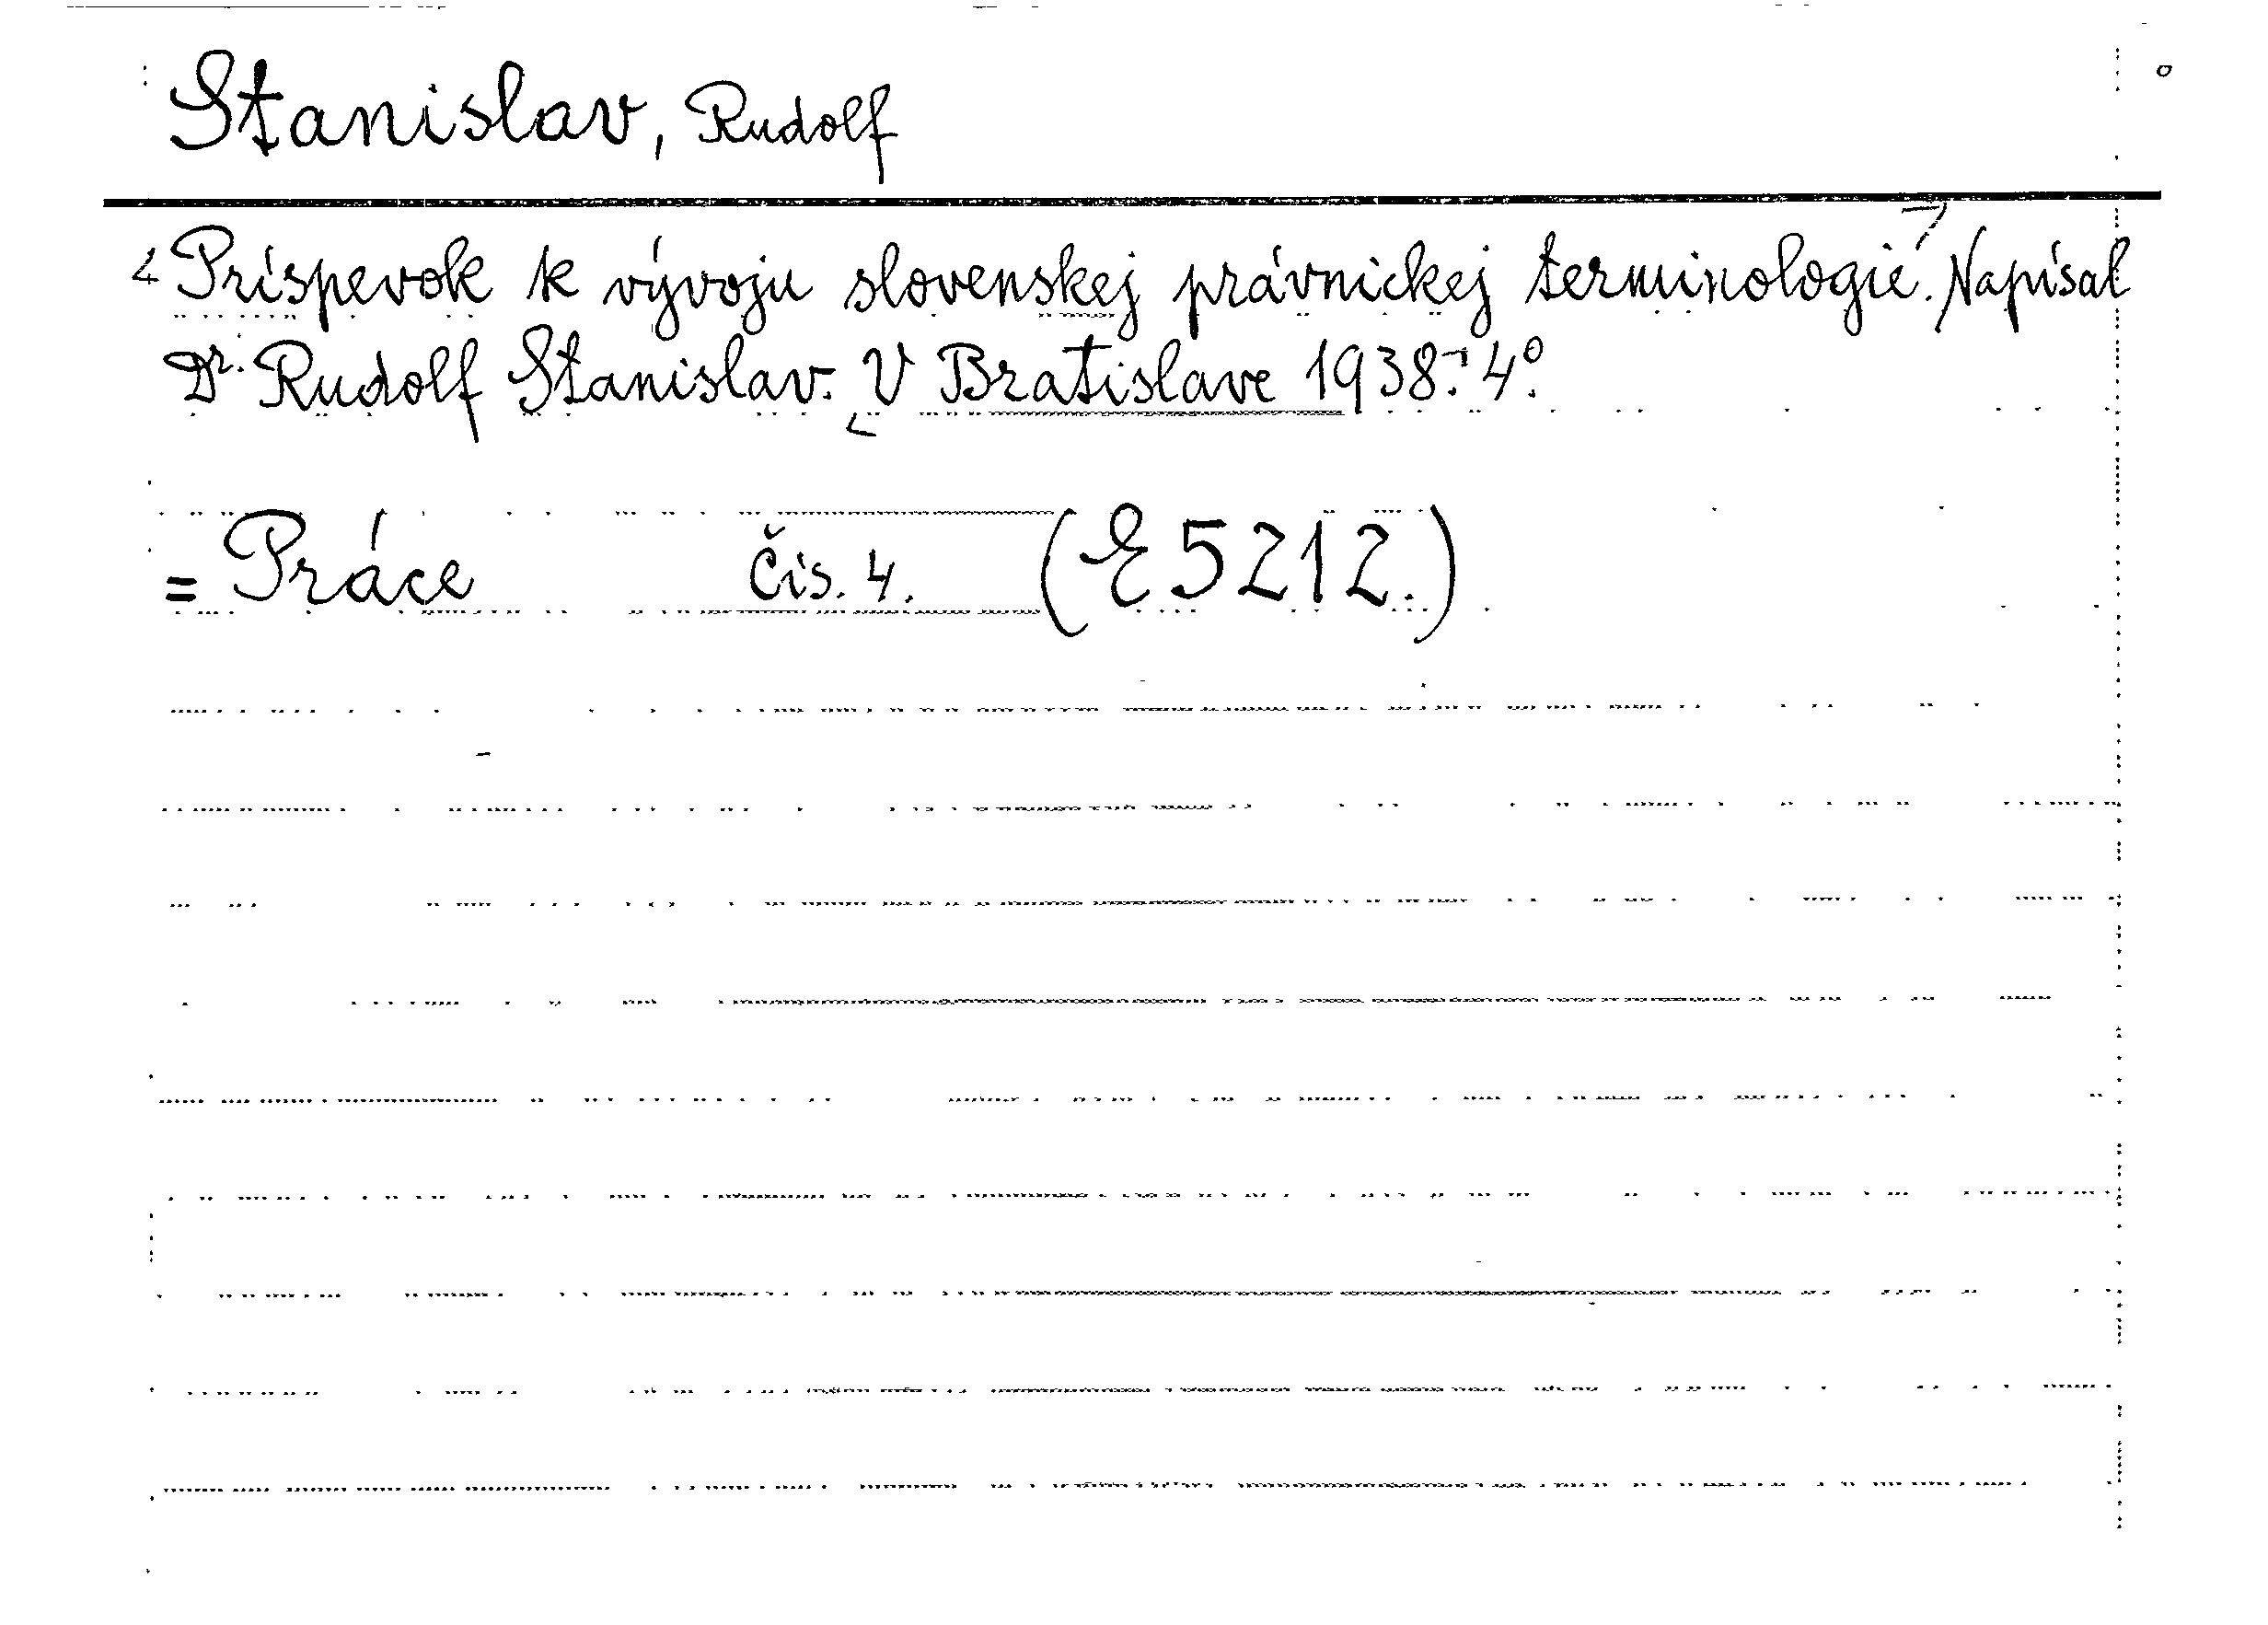 Stanislav, Rudolf
Príspevok k vývoju slovenskej právnickej terminologie. Napísal
Dr. Rudolf Stanislav. V Bratislave 1938. 4°.
= Práce čís. 4. (E 5212.)